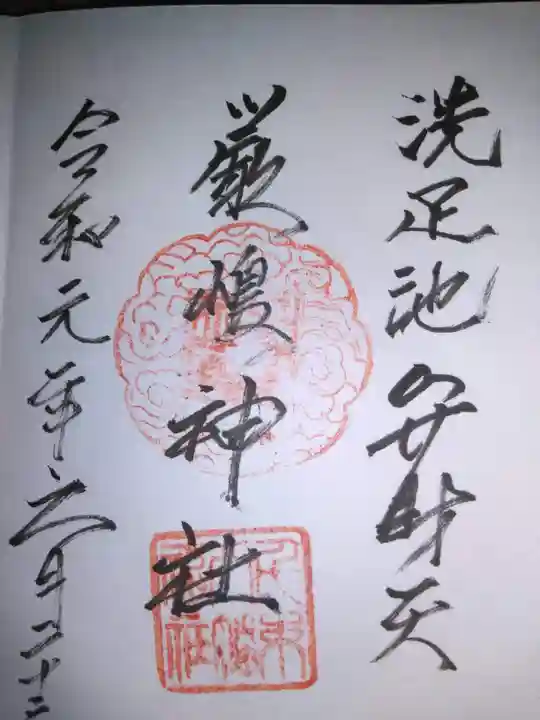 洗足池弁財天
嚴嶋神社
令和元年六月二十二